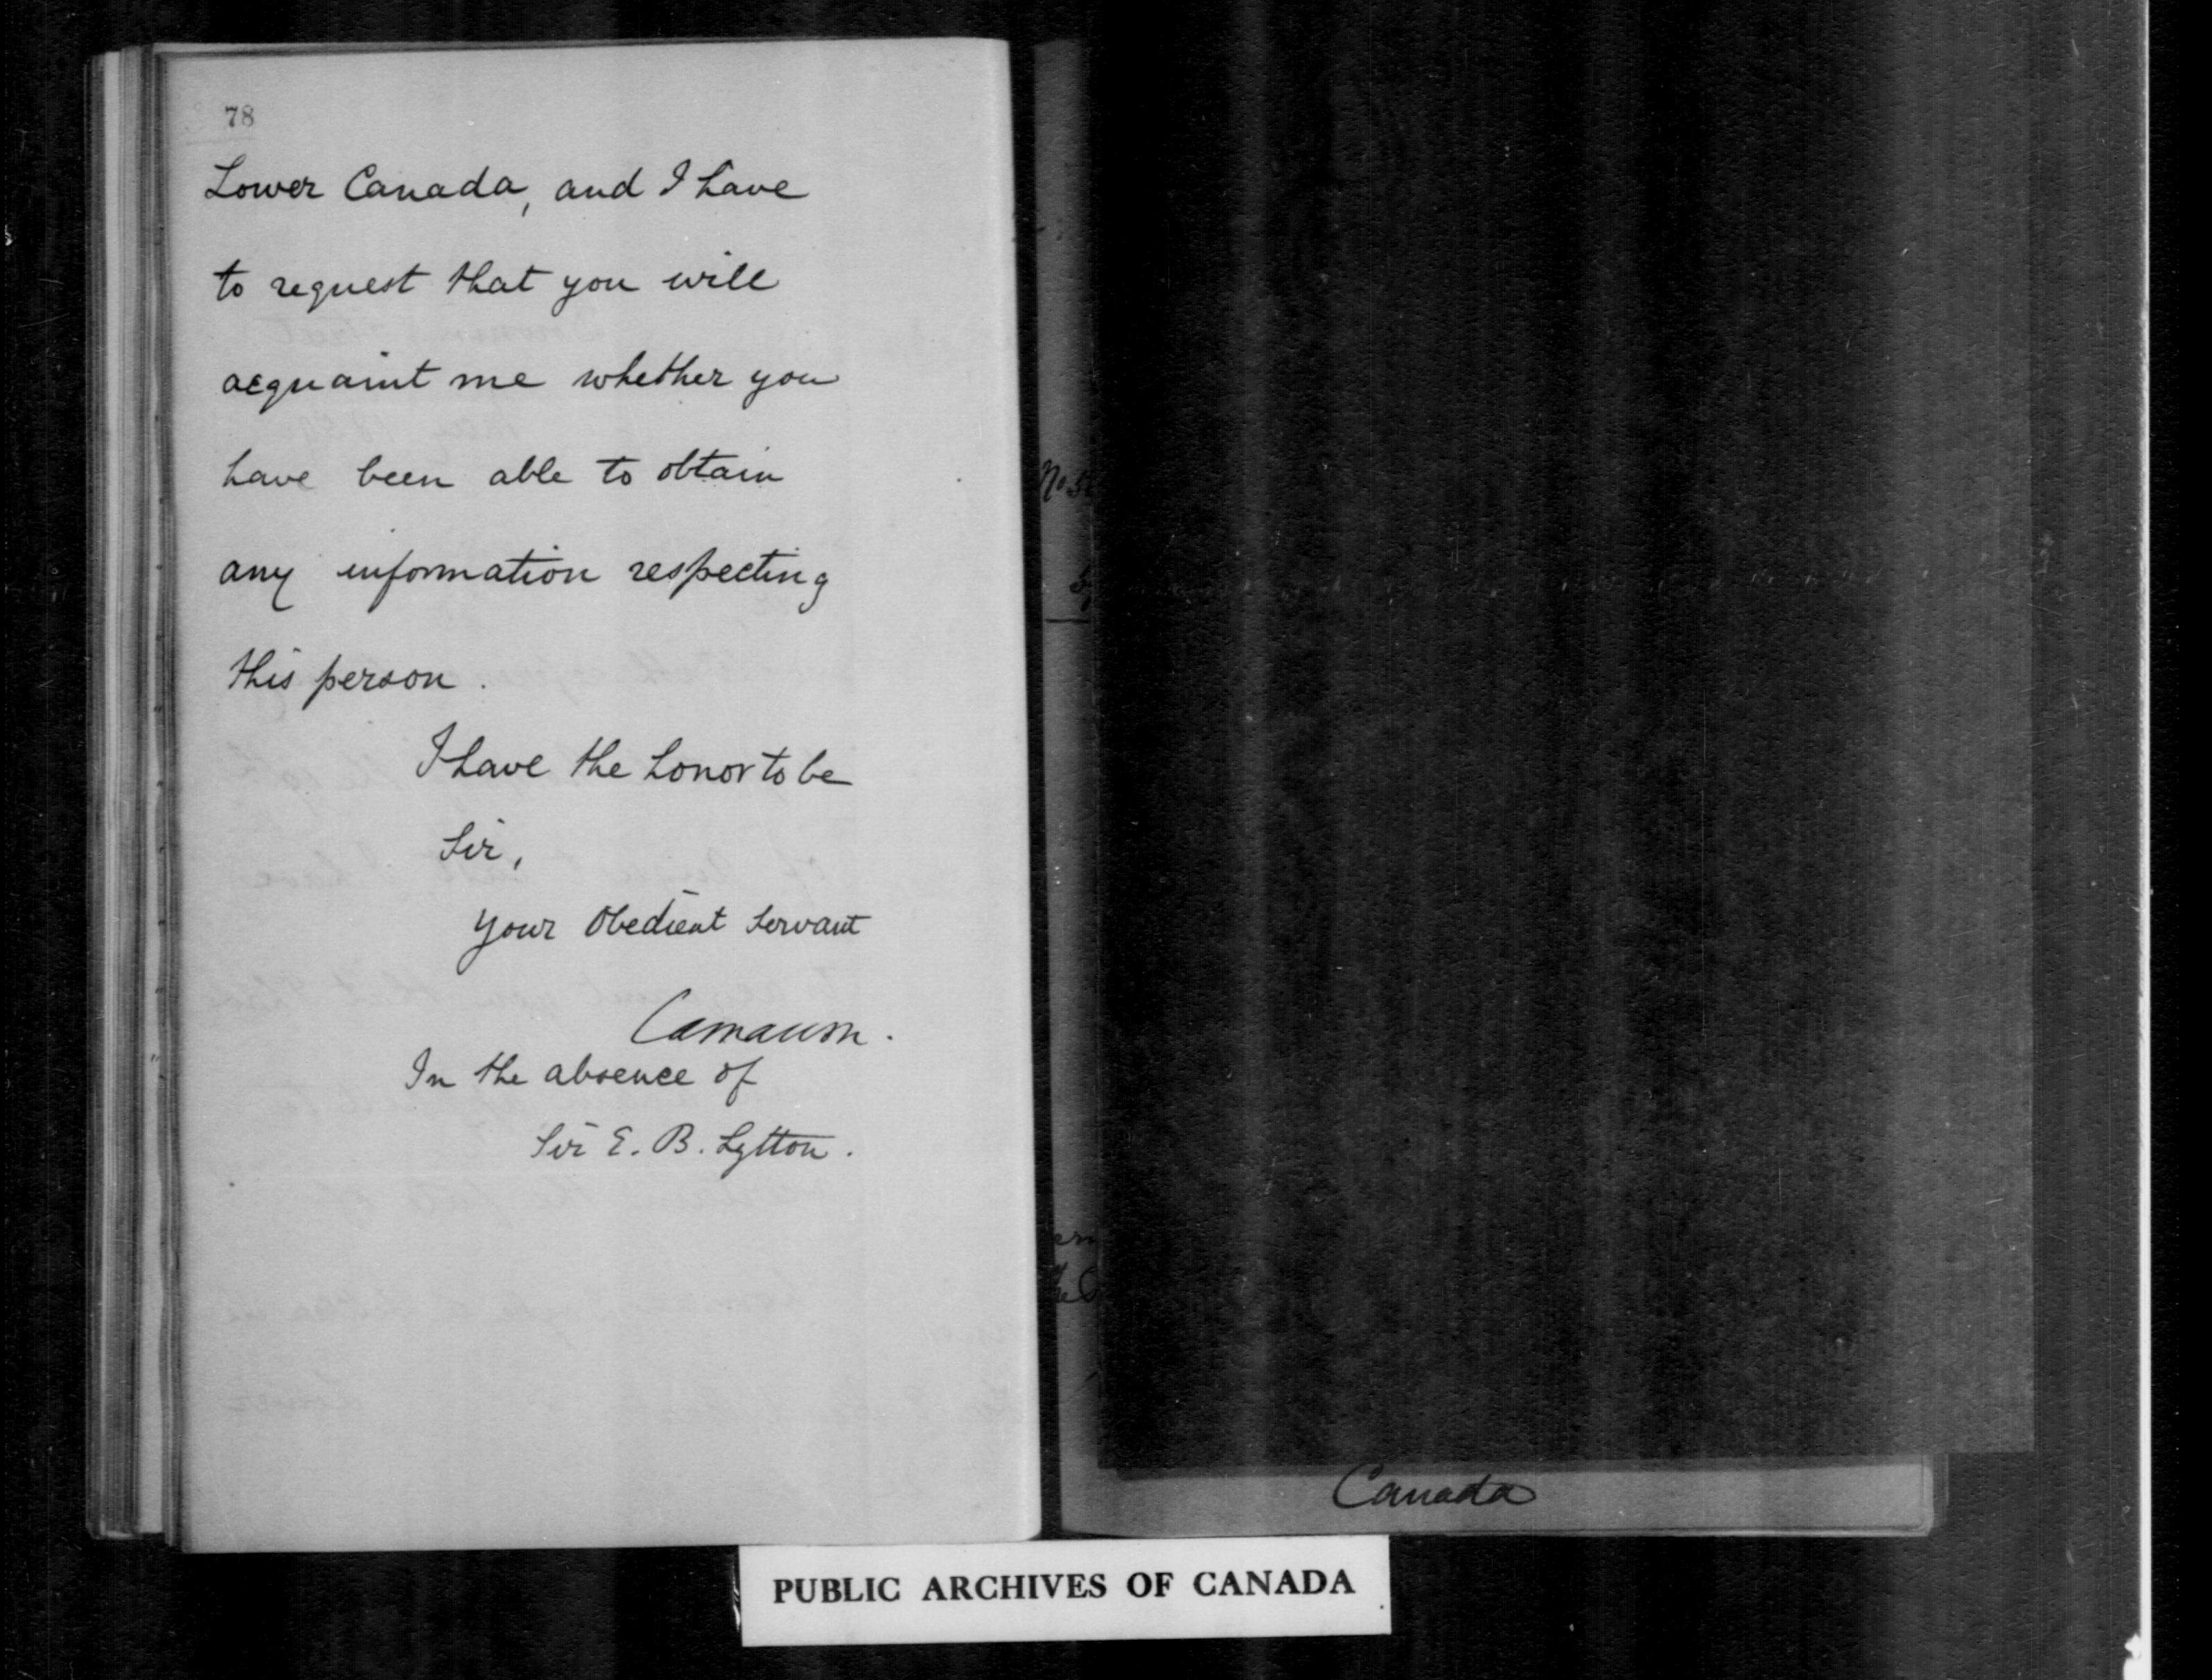 78
Lower Canada, and I have
to request that you will
acquaint me whether you
have been able to obtain
any information respecting
this person.
I have the honor to be
Sir,
Your Obedient Servant
Carnarvon.
In the absence of
Sir E. B. Lytton.
Canada
PUBLIC ARCHIVES OF CANADA